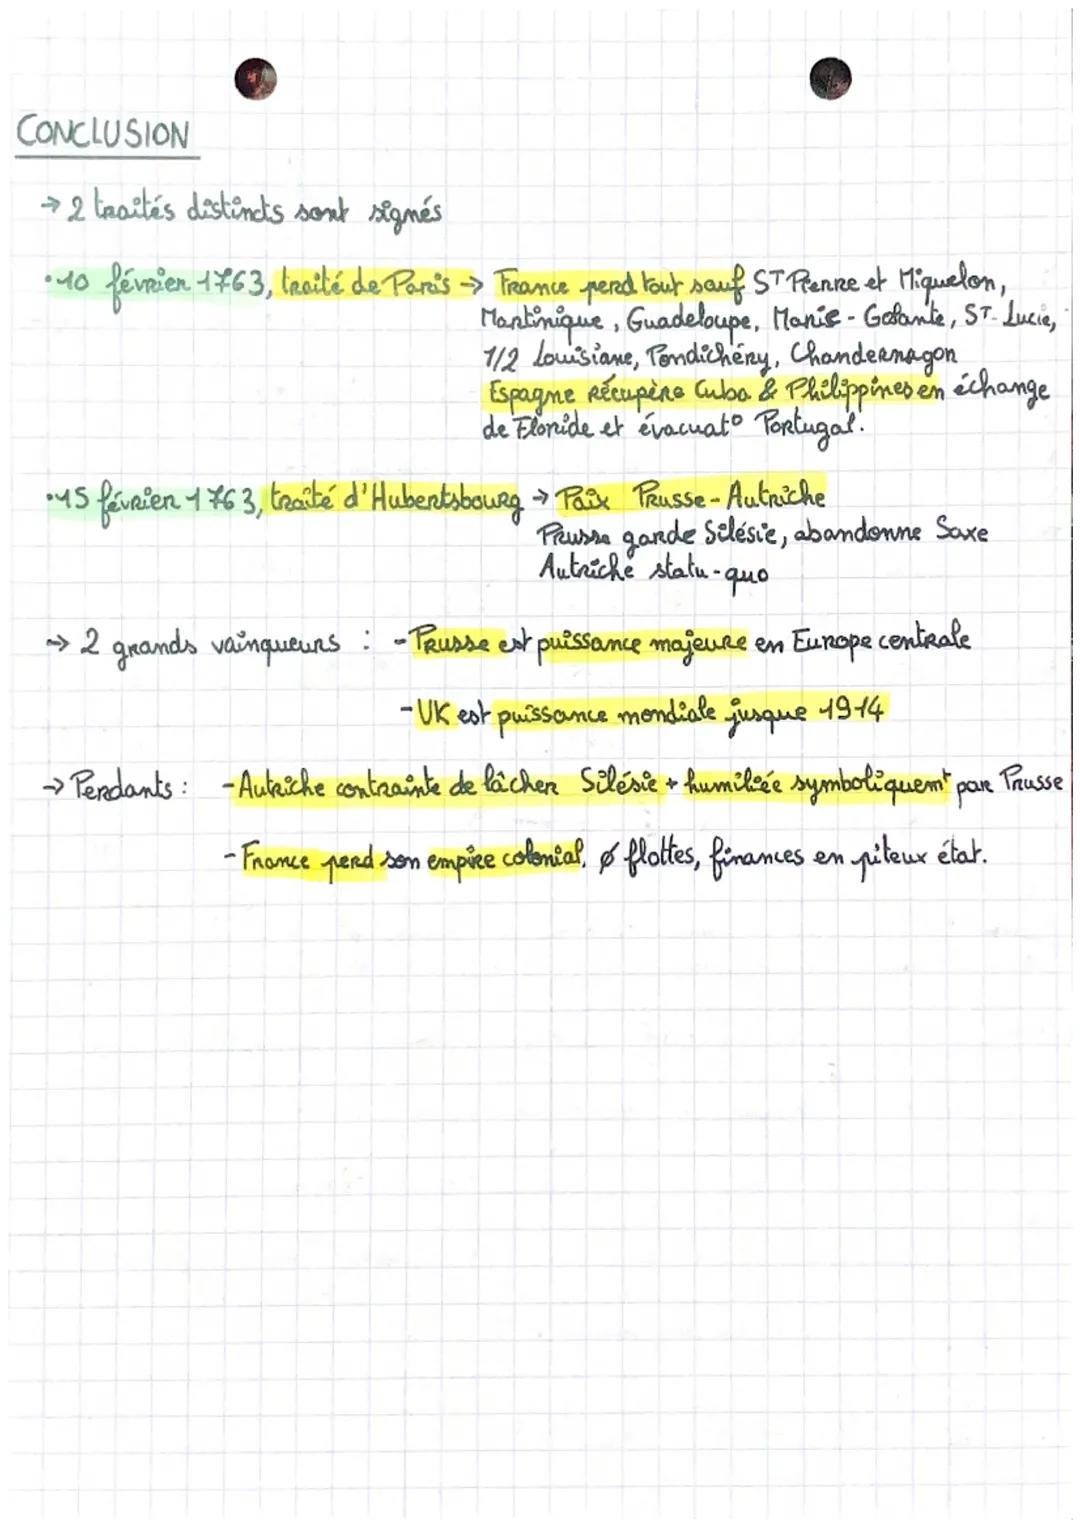 CONCLUSION
→ 2 traités distincts sont signés
• 10 février 1763, traité de Paris → France perd tout sauf ST Pierre et Miquelon,
Martinique, Guadeloupe, Marie-Galante, ST-Lucie,
1/2 Louisiane, Pondichéry, Chandernagon
Espagne récupère Cuba & Philippines en échange
de Floride et évacuat° Portugal.
• 15 février 1763, traité d'Hubertsbourg → Paix Prusse-Autriche
Prusse garde Silésie, abandonne Saxe
Autriche statu-quo
→ 2 grands vainqueurs : - Prusse est puissance majeure en Europe centrale
- UK est puissance mondiale jusque 1914
→ Perdants : - Autriche contrainte de lâcher Silésie + humiliée symboliquemt par Prusse
- France perd son empire colonial, ø flottes, finances en piteux état.